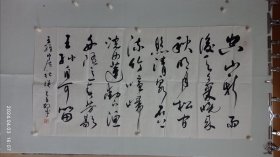 空山新雨
後天氣晚来
秋明月松間
照清泉石上
流竹喧歸
浣女蓮動下漁
舟随意春芳歇
王孫自可留